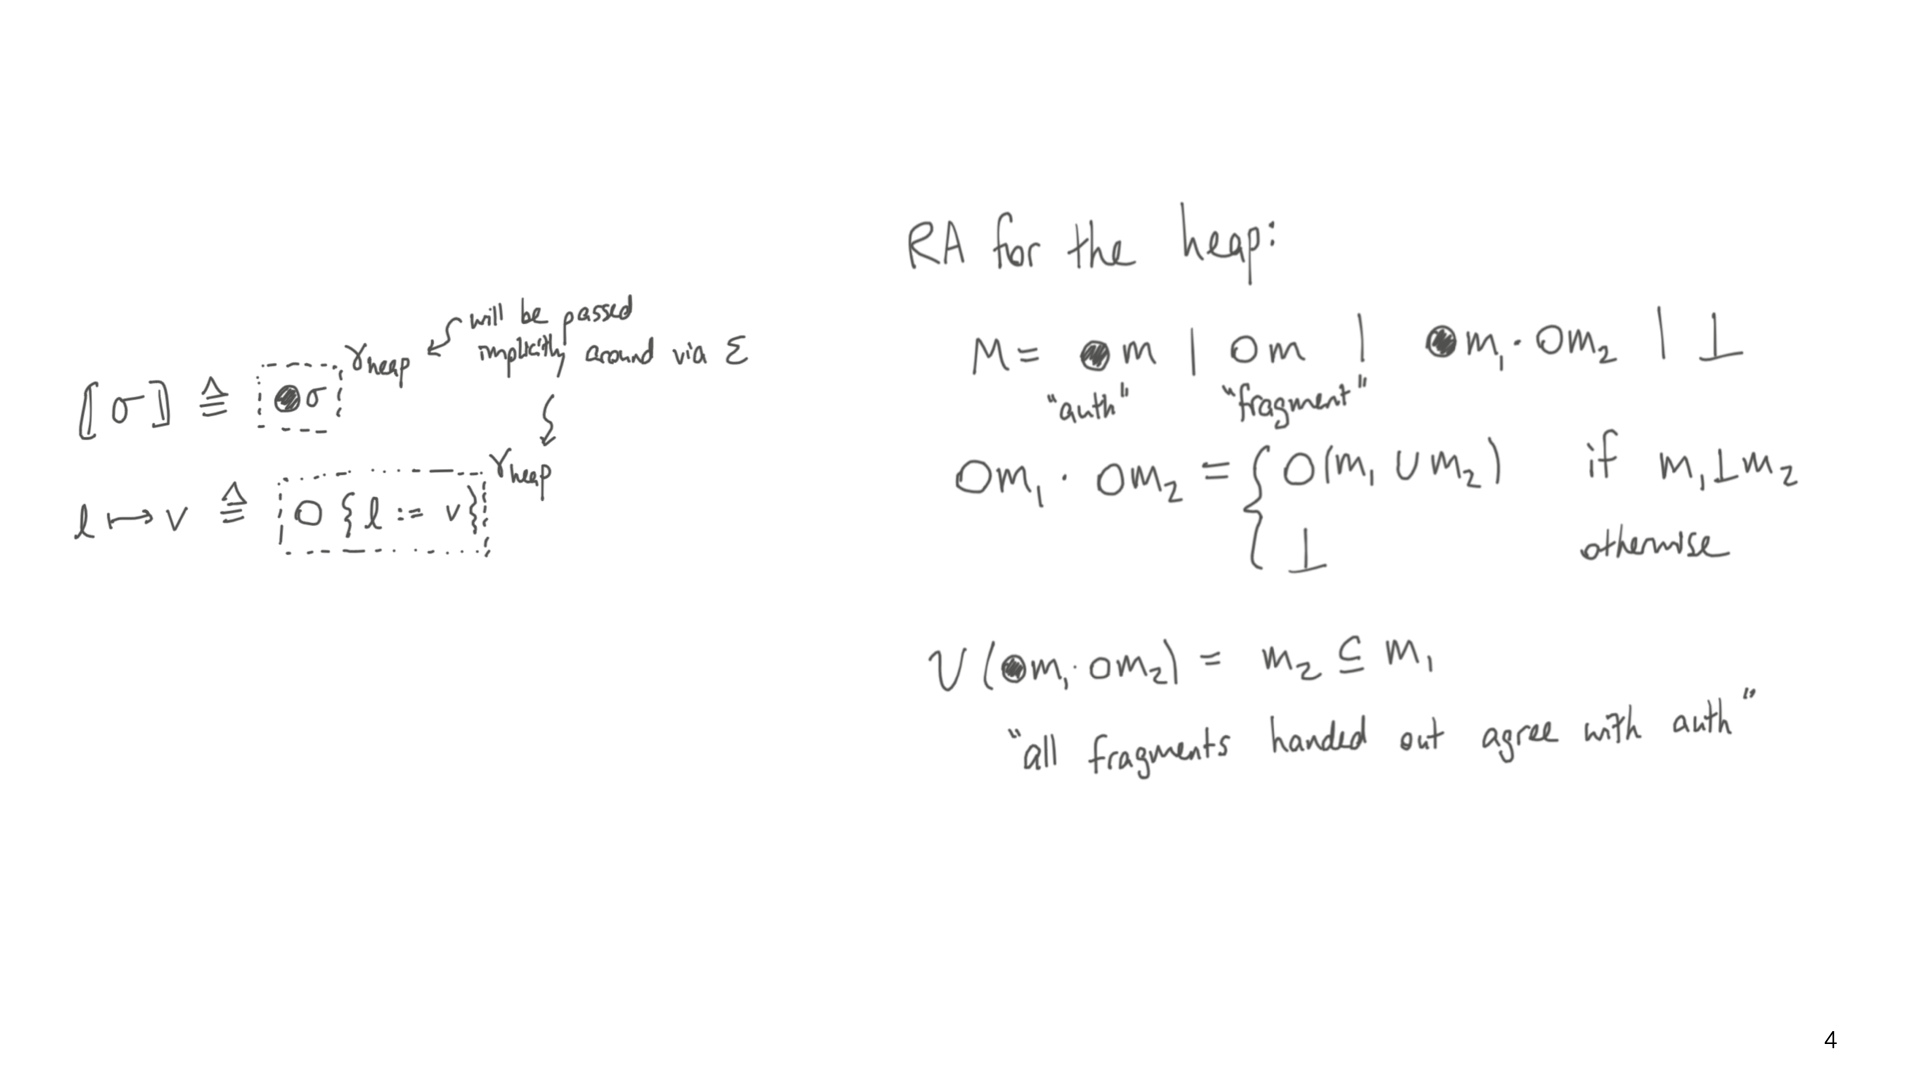 will be passed
implicitly around via Σ
⟦σ⟧ ≜ ●σ γheap
l ↦ v ≜ ○{l := v} γheap
RA for the heap:
M = ●m | ○m | ●m₁·○m₂ | ⊥
"auth" "fragment"
○m₁ · ○m₂ = { ○(m₁ ∪ m₂) if m₁⊥m₂
⊥ otherwise
V(●m₁·○m₂) = m₂ ⊆ m₁
"all fragments handed out agree with auth"
4